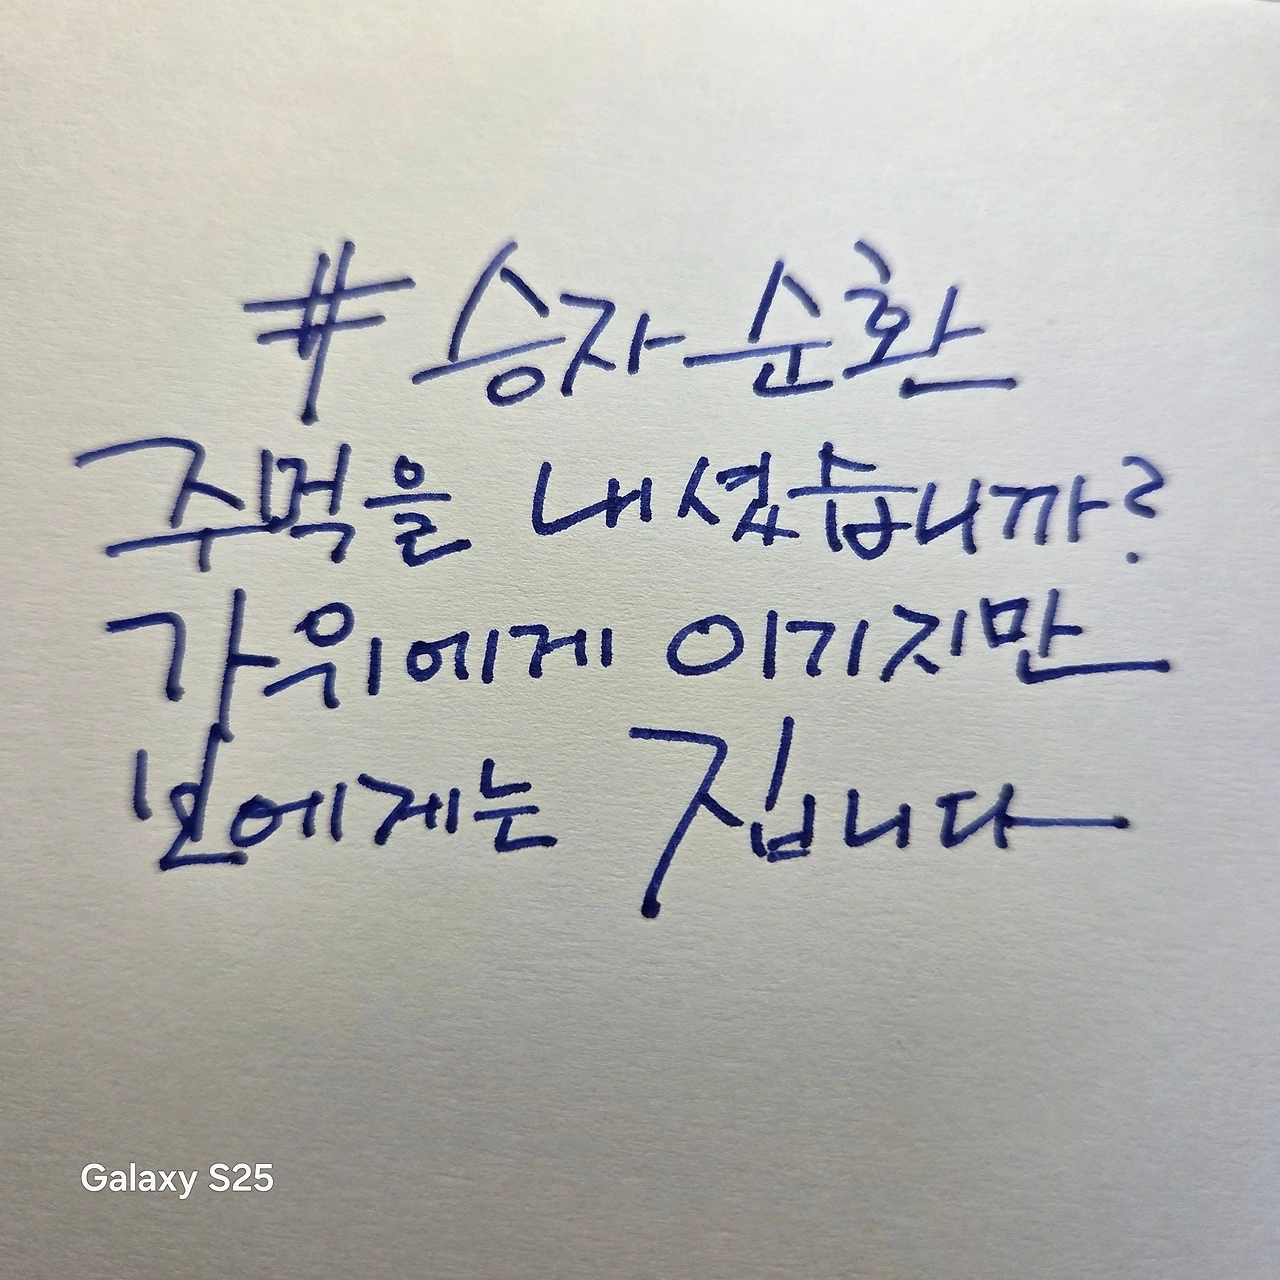 #승자순환
주먹을 내셨습니까?
가위에게 이기지만
보에게는 집니다
Galaxy S25